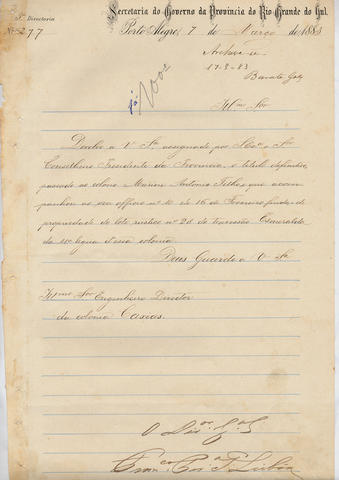 Secretaria do Governo da Provincia do Rio Grande do Sul.
1ª Directoria
Nº 277
Porto Alegre, 7 de Março de 1883
Archive-se
17-3-83
Barata Góes
Illmo Snr
Devolvo a V. Sª assignado por S. Exª o Sr.
Conselheiro Presidente da Provincia, o titulo definitivo
passado ao colono Marin Antonio Filho, que acom-
panhou ao seu officio nº 10 de 16 de Fevereiro findo, de
propriedade do lote rustico nº 28 do travessão Esmeralda
da 15ª legua d'essa colonia.
Deus Guarde a V. Sª
Illmo Snr Engenheiro Director
da colonia Caxias.
O Diror Gal
Lisboa